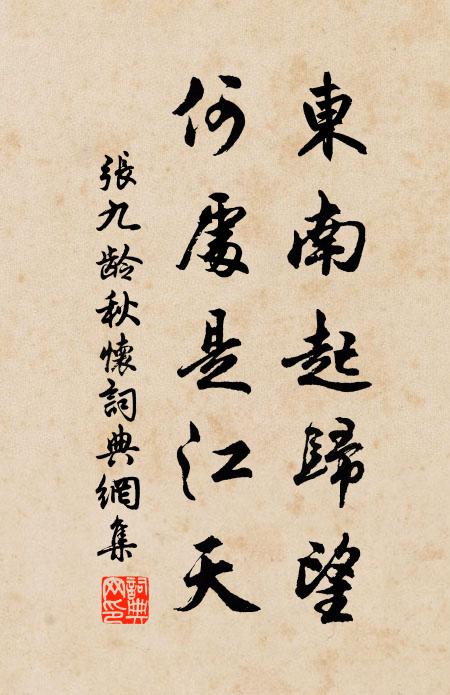 東南起歸望
何處是江天
張九龄秋懷詞典網集
詞典網印